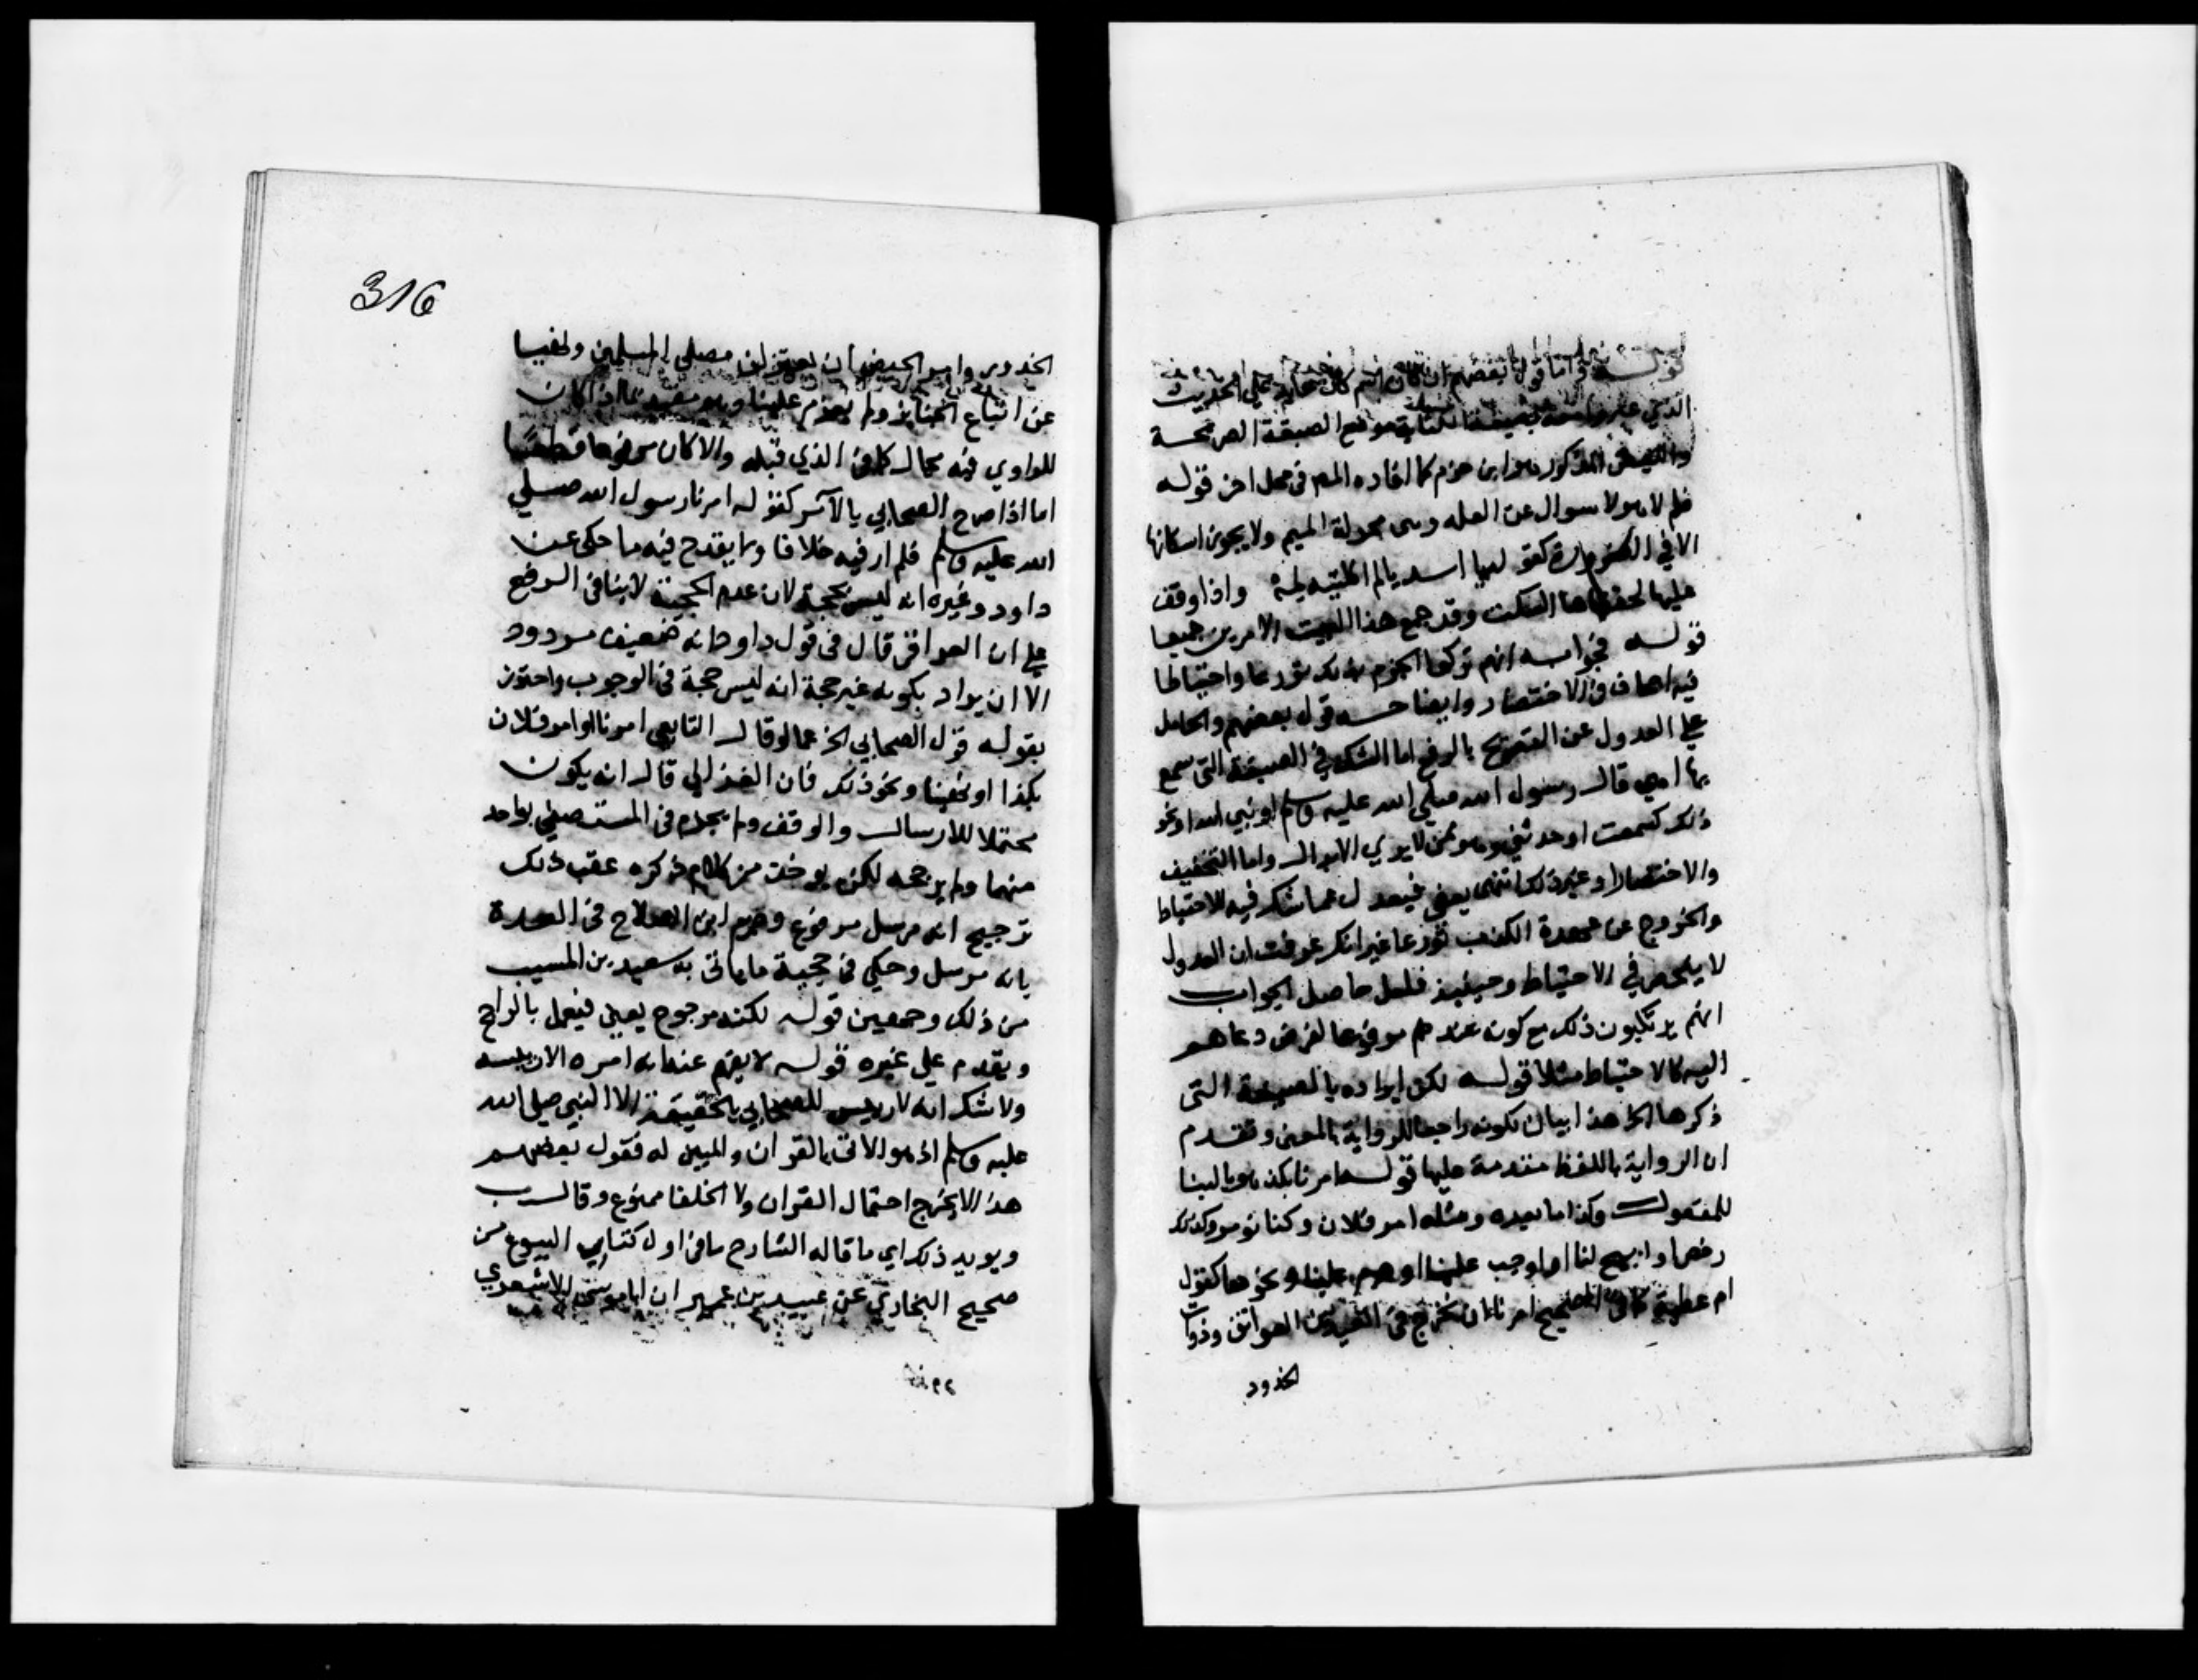 قوله واما قول بعضهم ان كان الحديث
الذي بصيغة الكناية موضع الصيغة الصريحة
والبعض المذكور هو ابن حزم كما افاده المص في محل اخر قوله
فلم لا هو سوال عن العله وهى محولة الميم ولا يجوز اسكانها
الا في الضرورة كقوله يا اسد يالم اكلته لمه واذا وقف
عليها لحقها ها السكت وقد جمع هذا البيت الامرين جميعا
قوله فجوابه انهم تركوا الجزم بذلك تورعا واحتياطا
فيه اضاف في الاختصار وايضا حسه قول بعضهم والحامل
علي العدول عن التصريح بالرفع اما الشك في الصيغة التي سمع
بها اهي قال رسول الله صلي الله عليه وسلم او نبي الله او نحو
ذلك كسمعت او حدثني وهو ممن لا يري الابدال واما التخفيف
والاختصار او غير ذلك انتهى يعني فيعدل عما شك فيه للاحتياط
والخروج عن عهدة الكذب تورعا غير انك عرفت ان العدول
لا ينحصر في الاحتياط وحينيذ فلعل حاصل الجواب
انهم يرتكبون ذلك مع كونه عندهم مرفوعا لغرض دعاهم
اليه كالاحتياط مثلا قوله لكن ايراده بالصيغة التي
ذكرها الخ هذا بيان لكونه راجعا للرواية بالمعنى وتقدم
ان الرواية باللفظ مقدمة عليها قوله امرنا بكذا هو بالبنا
للمفعول وكذا ما بعده ومثله امر فلان وكنا نومر وكذلك
رخص او ابيح لنا او اوجب علينا او حرم علينا ونحوها كقول
ام عطية كما في الصحيح امرنا ان نخرج في العيدين العواتق وذوات
الخدور
316
الخدور وامر الحيض ان يعتزلن مصلي المسلمين ونهينا
عن اتباع الجنايز ولم يعزم علينا وهو مقيد بما اذا كان
للراوي فيه مجال كما في الذي قبله والا كان مرفوعا قطعا
اما اذا صرح الصحابي بالآمر كقوله امرنا رسول الله صلي
الله عليه وسلم فلم ار فيه خلافا ولا يقدح فيه ما حكي عن
داود وغيره انه ليس بحجة لان عدم الحجية لا ينافي الرفع
علي ان العراقي قال في قول داود انه ضعيف مردود
الا ان يراد بكونه غير حجة انه ليس حجة في الوجوب واحترز
بقوله قول الصحابي الخ عما لو قال التابعي امرنا او امر فلان
بكذا او نهينا ونحو ذلك فان الغزالي قال انه يكون
محتملا للارسال والوقف ولم يجزم في المستصفي بواحد
منهما ولم يرجحه لكن يوخذ من كلام ذكره عقب ذلك
ترجيح انه مرسل مرفوع وجزم ابن الصلاح في العدة
بانه مرسل وحكي في حجية ما ياتي به سعيد بن المسيب
من ذلك وجهين قوله لكنه مرجوح يعني فيعمل بالراجح
ويقدم علي غيره قوله لا يفهم عنه انه امره الا رييسه
ولا شك انه لا رييس للصحابي بالحقيقة الا النبي صلي الله
عليه وسلم اذ هو الاتي بالقران والمبين له فقول بعضهم
هذا لا يخرج احتمال القران ولا الخلفا ممنوع وقال
ويويد ذلك اي ما قاله الشارح ما في اول كتاب البيوع من
صحيح البخاري عن عبيد بن عمير ان ابا موسى الاشعري